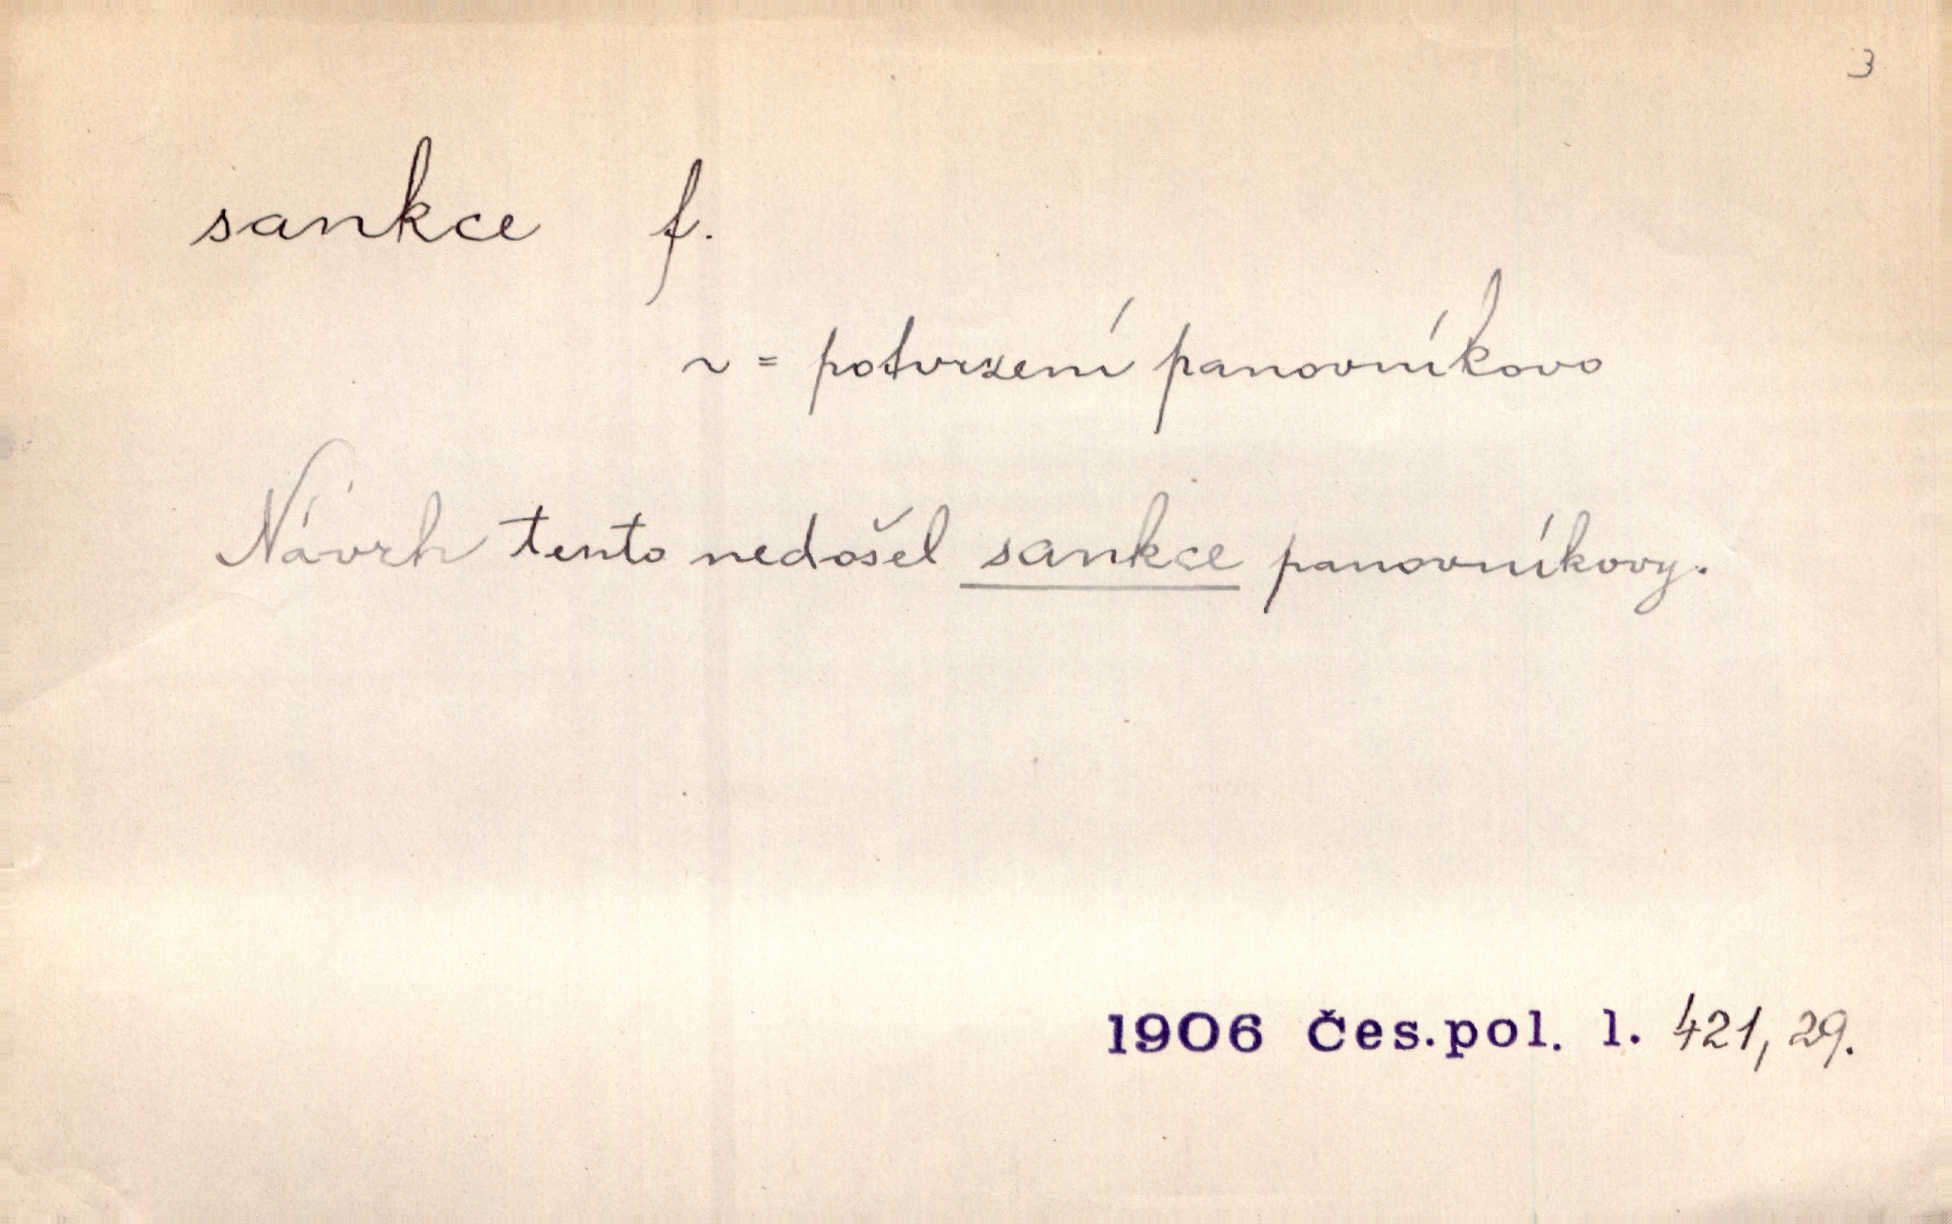 3
sankce f.
~ = potvrzení panovníkovo
Návrh tento nedošel sankce panovníkovy.
1906 Čes.pol. l. 421, 29.